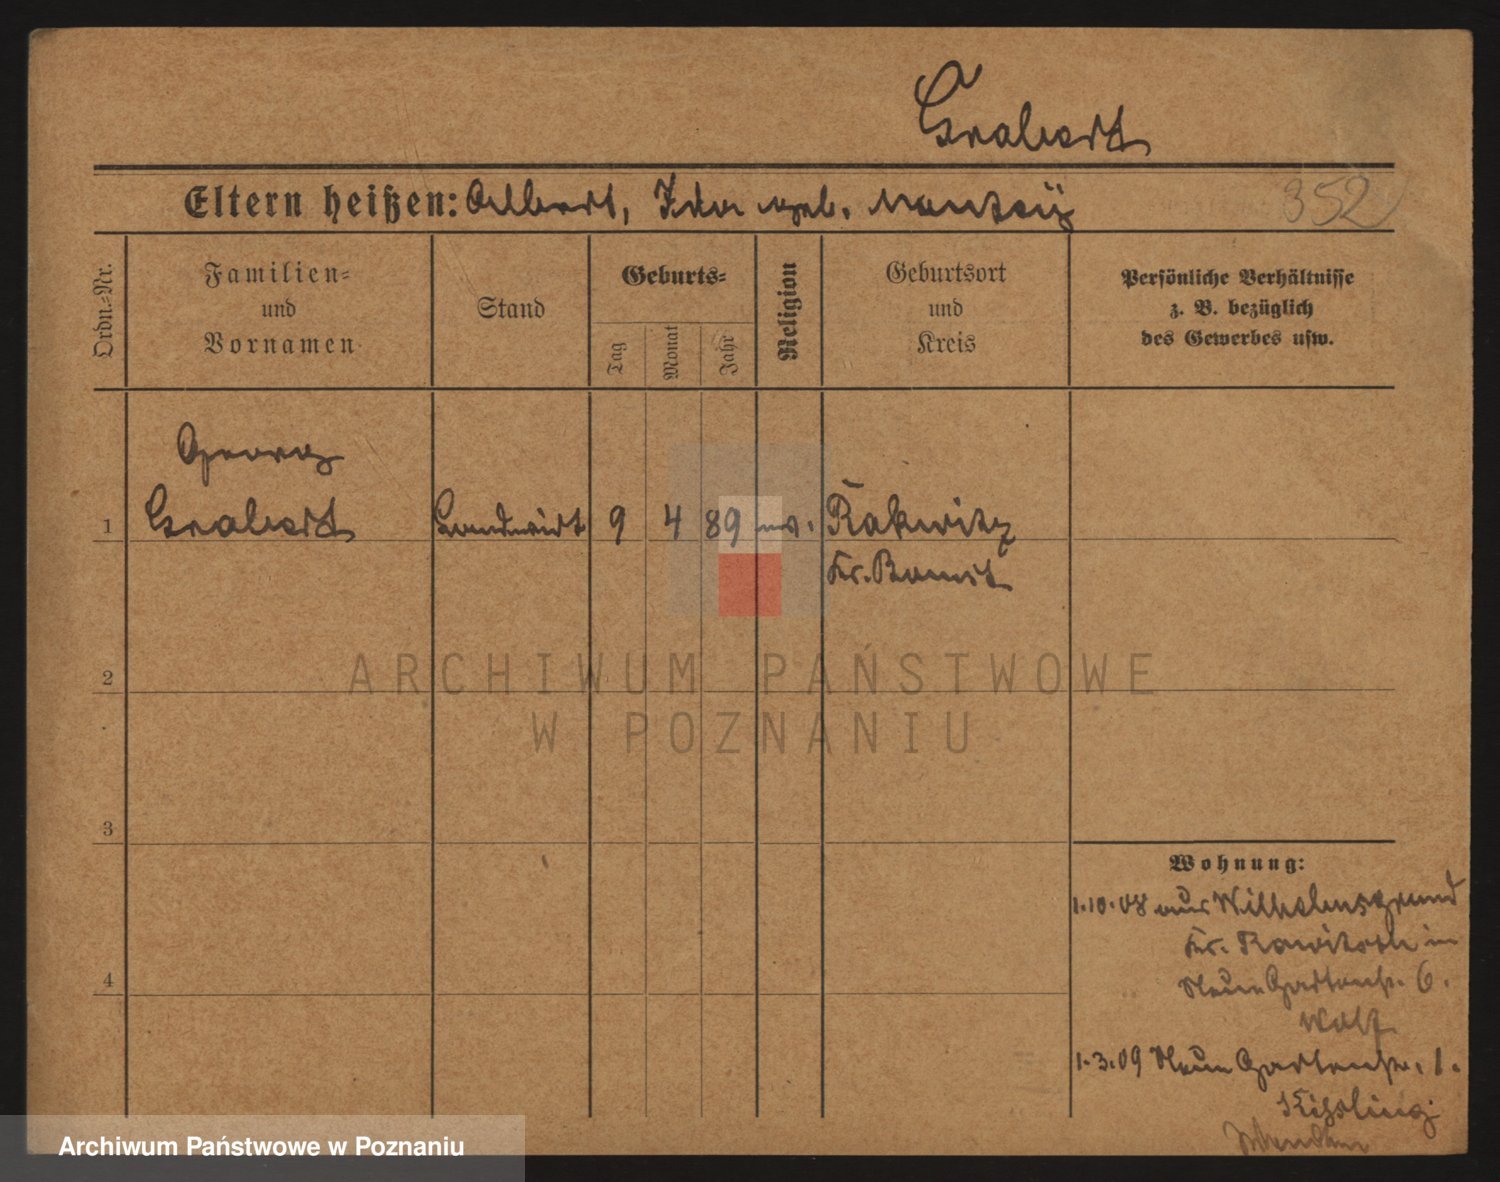 Grabert
Eltern heißen: Albert, Ida geb.
352
Ordn.-Nr.
Familien-
und
Vornamen
Stand
Geburts-
Tag
Monat
Jahr
Religion
Geburtsort
und
Kreis
Persönliche Verhältnisse
z. B. bezüglich
des Gewerbes usw.
Georg
1 Grabert Landwirt 9 4 89 ev. Rakwitz
Kr. Bomst
2
3
4
ARCHIWUM PAŃSTWOWE
W POZNANIU
Wohnung:
1.10.08 aus Wilhelmsgrund
Kr. Rawitsch in
Neue Gartenstr. 6.
Wolf
1.3.09 Neue Gartenstr. 1.
Kissling
Archiwum Państwowe w Poznaniu